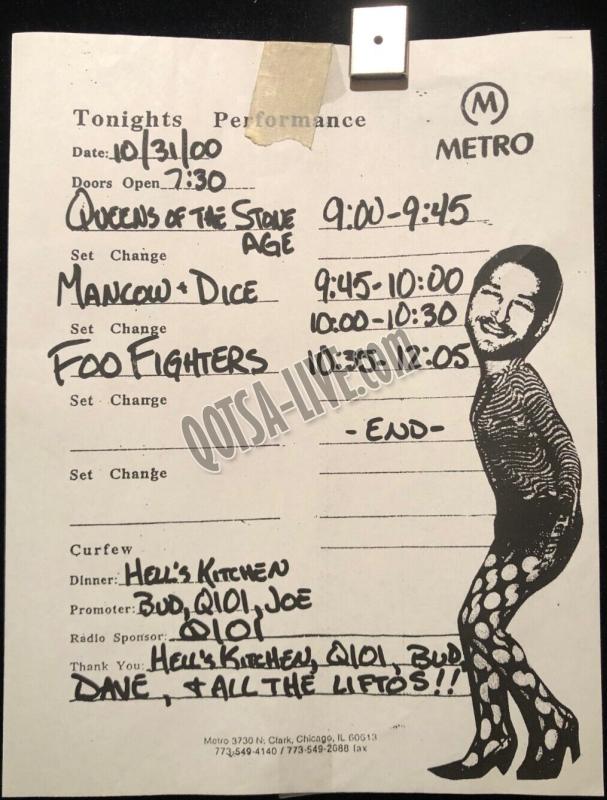 Tonights Performance
M
METRO
Date: 10/31/00
Doors Open 7:30
QUEENS OF THE STONE AGE 9:00-9:45
Set Change
MANCOW + DICE 9:45-10:00
Set Change 10:00-10:30
FOO FIGHTERS 10:35-12:05
Set Change
-END-
Set Change
Curfew
Dinner: HELL'S KITCHEN
Promoter: BUD, Q101, JOE
Radio Sponsor: Q101
Thank You: HELL'S KITCHEN, Q101, BUD,
DAVE, + ALL THE LIFTOS!!
Metro 3730 N. Clark, Chicago, IL 60613
773-549-4140 / 773-549-2088 fax
QOTSA-LIVE.com